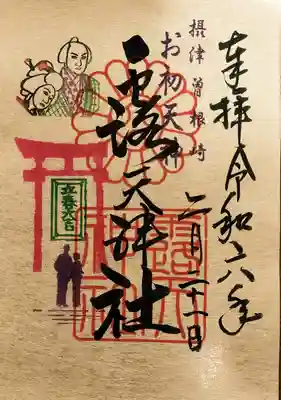 奉拝 令和六年
二月二十一日
摂津曽根崎
お初天神
露天神社
立春大吉